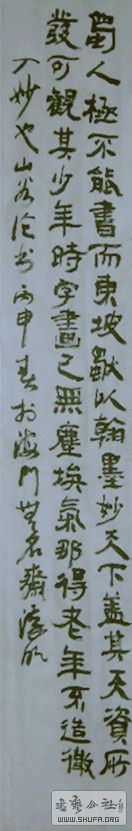 蜀人極不能書而東坡獨以翰墨妙天下蓋其天資所
發可觀其少年時字畫已無塵埃氣那得老年不造微
入妙也山谷論書丙申春於海門無名齋
書艺公社
WWW.SHUFA.ORG